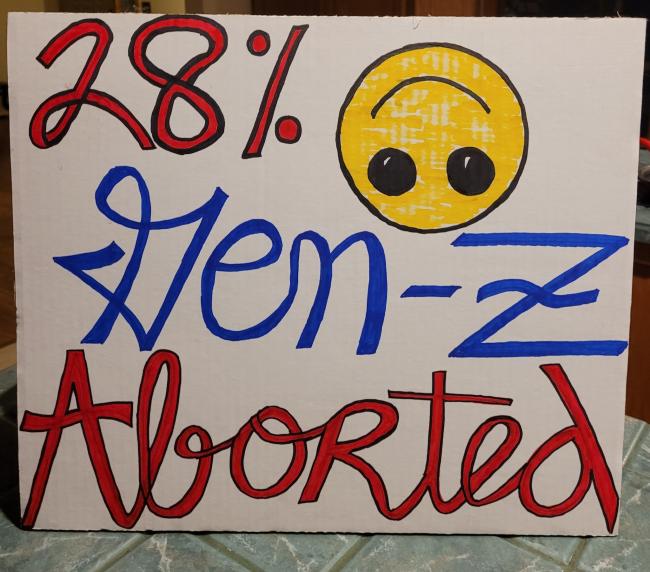 28%
Gen-Z
Aborted